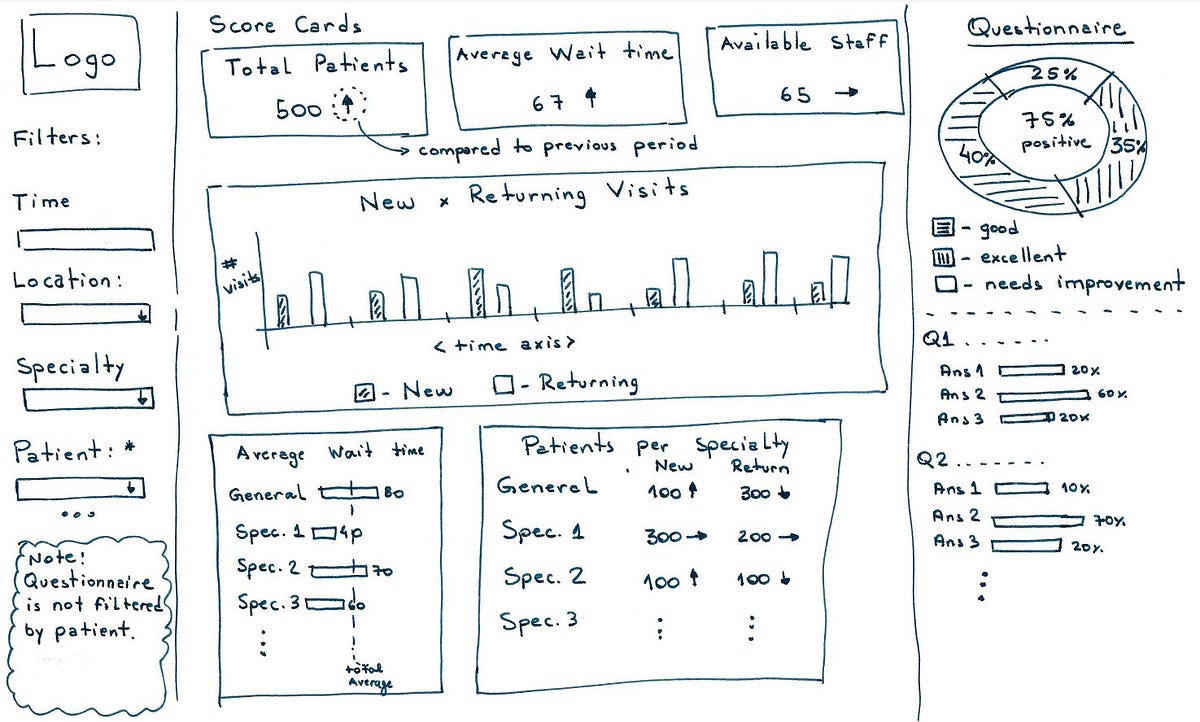 Logo
Filters:
Time
Location:
Specialty
Patient: *
...
Note!
Questionneire
is not filtered
by patient.
Score Cards
Total Patients
500 ↑
Average Wait time
67 ↑
Available Staff
65 →
compared to previous period
New x Returning Visits
# visits
< time axis >
- New - Returning
Average Wait time
General 80
Spec. 1 40
Spec. 2 70
Spec. 3 60
total
Average
Patients per Specialty
New Return
General 100 ↑ 300 ↓
Spec. 1 300 → 200 →
Spec. 2 100 ↑ 100 ↓
Spec. 3
Questionnaire
25%
75%
positive
40%
35%
- good
- excellent
- needs improvement
Q1 . . . . . .
Ans 1 20%
Ans 2 60%
Ans 3 20%
Q2 . . . . . . .
Ans 1 10%
Ans 2 70%
Ans 3 20%